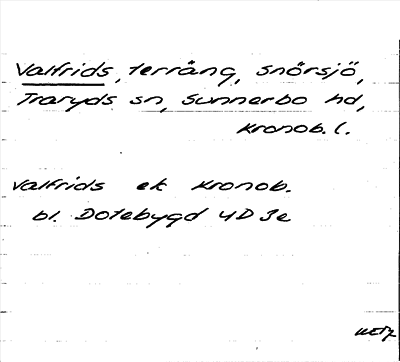 Valfrids, terräng, Snörsjö,
Traryds sn, Sunnerbo hd,
Kronob. l.
Valfrids ek Kronob.
bl. Dotebygd 4D 3e